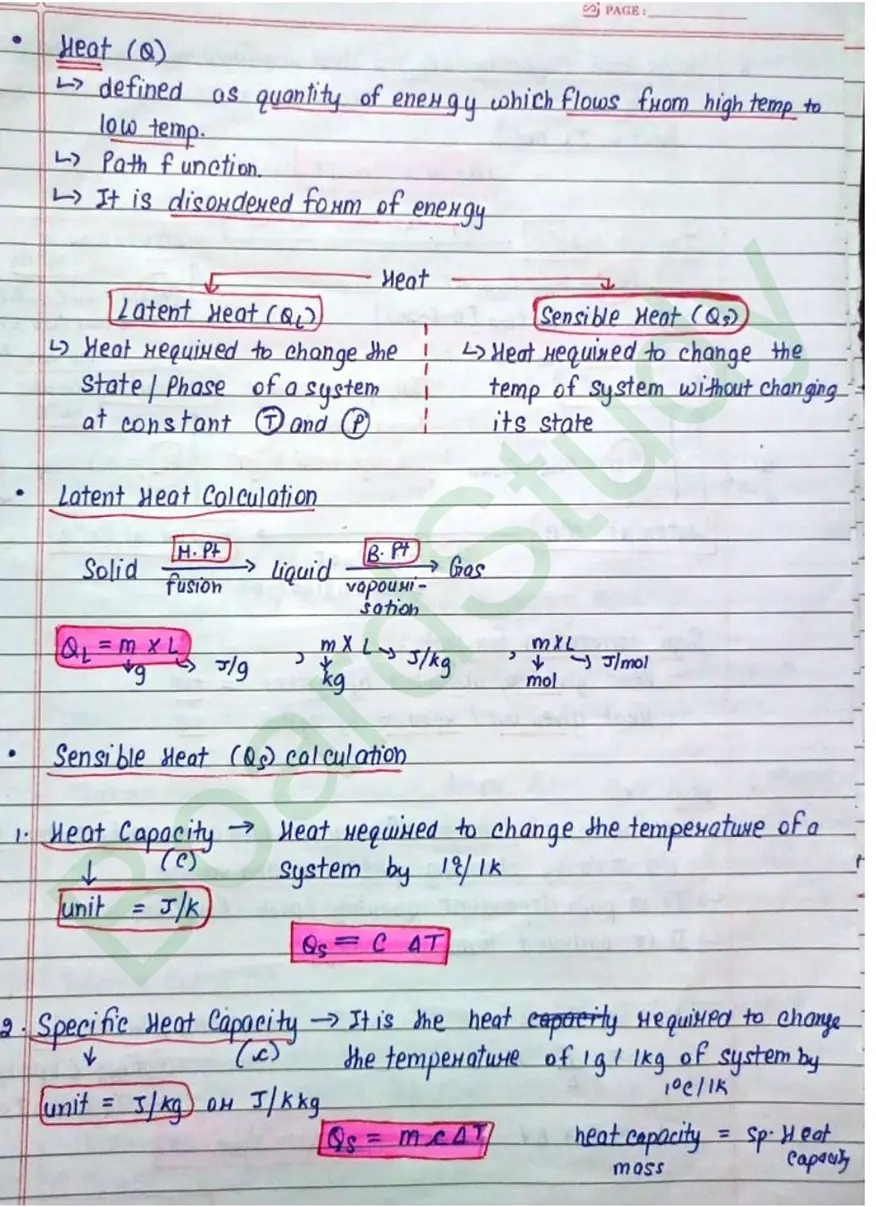 PAGE:
• Heat (Q)
↳ defined as quantity of energy which flows from high temp to
low temp.
↳ Path function.
↳ It is disordered form of energy
Heat
Latent Heat (QL)
Sensible Heat (QS)
↳ Heat required to change the
State / Phase of a system
at constant T and P
↳ Heat required to change the
temp of system without changing
its state
• Latent Heat Calculation
Solid M.Pt fusion → liquid B.Pt vapouri-sation → Gas
QL = m x L , m x L → J/kg , m x L → J/mol
g J/g kg mol
• Sensible Heat (QS) calculation
1. Heat Capacity → Heat required to change the temperature of a
(C) system by 1°c/ 1K
unit = J/K
QS = C ΔT
2. Specific Heat Capacity → It is the heat capacity required to change
(c) the temperature of 1g / 1kg of system by
1°C/1K
unit = J/kg or J/Kkg
QS = m c ΔT
heat capacity = sp. Heat
mass capacity
BoardStudy